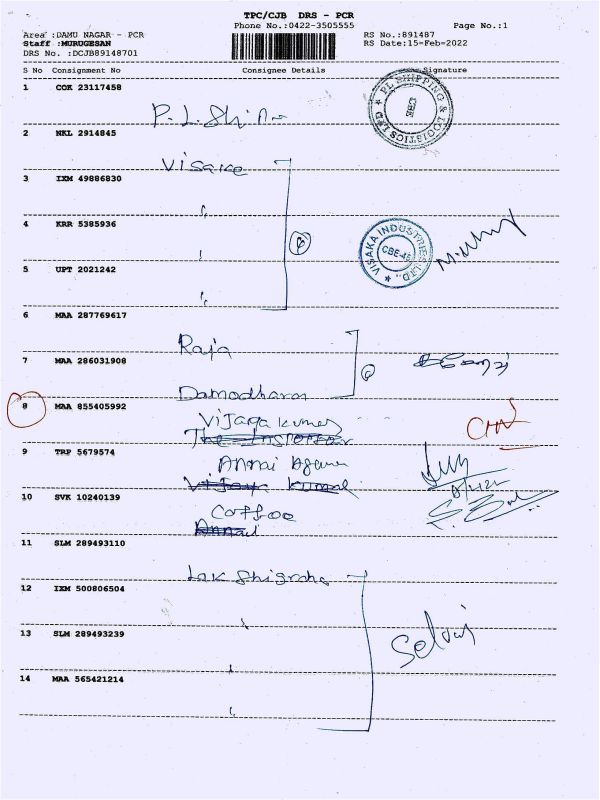 TPC/CJB DRS - PCR
Phone No.:0422-3505555 Page No.:1
Area :DAMU NAGAR - PCR RS No.:891487
Staff :MURUGESAN RS Date:15-Feb-2022
DRS No. :DCJB89148701
S No Consignment No Consignee Details Signature
1 COK 23117458
PL SHIPPING & LOGISTICS LTD
CBE
P.L.Shi
2 NKL 2914845
Visaka
3 IXM 49886830
4 KRR 5385936
VISAKA INDUSTRIES LTD.,
CBE-45
5 UPT 2021242
6 MAA 287769617
Raja
7 MAA 286031908
Damodharan
8 MAA 855405992
Vijaya kumar
9 TRP 5679574
Annai
Vijaya kumal
10 SVK 10240139
Coffee
Annai
11 SLM 289493110
Lak
12 IXM 500806504
13 SLM 289493239
Selvaj
14 MAA 565421214